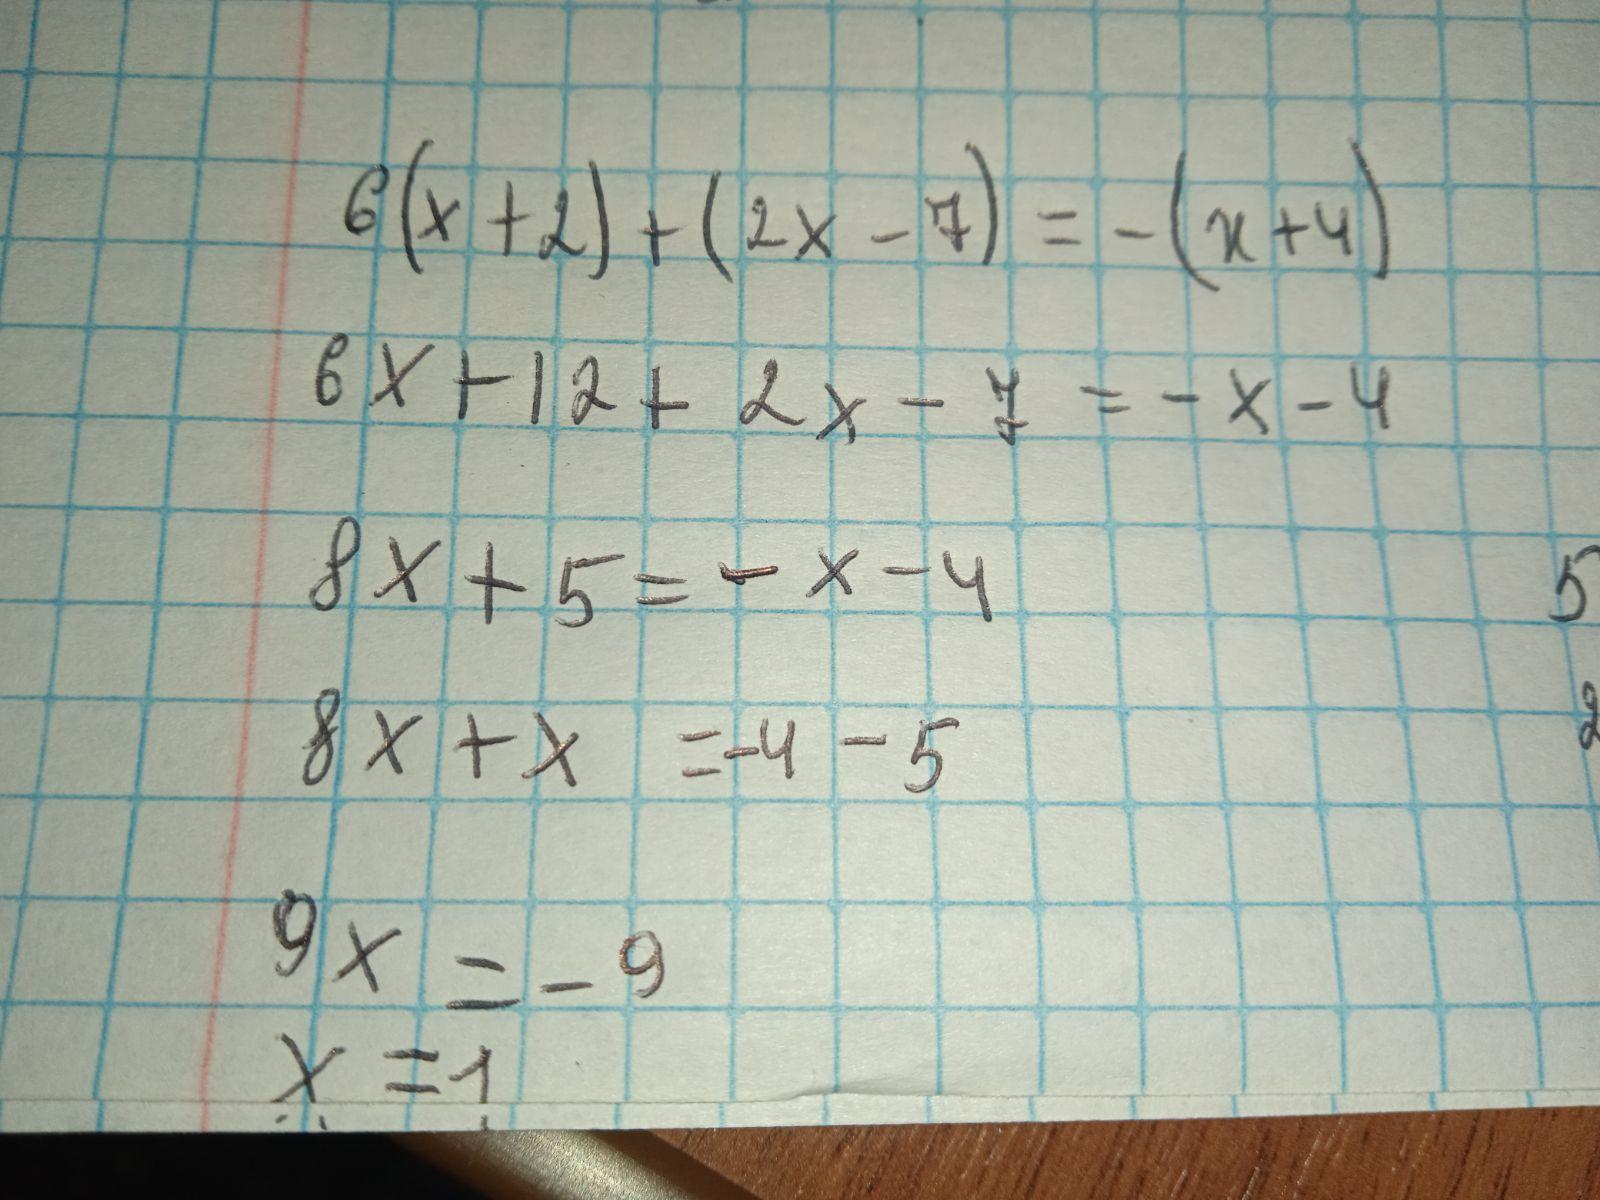 6(x+2)+(2x-7)=-(x+4)
6x+12+2x-7=-x-4
8x+5=-x-4
5
8x+x=-4-5
2
9x=-9
x=-1